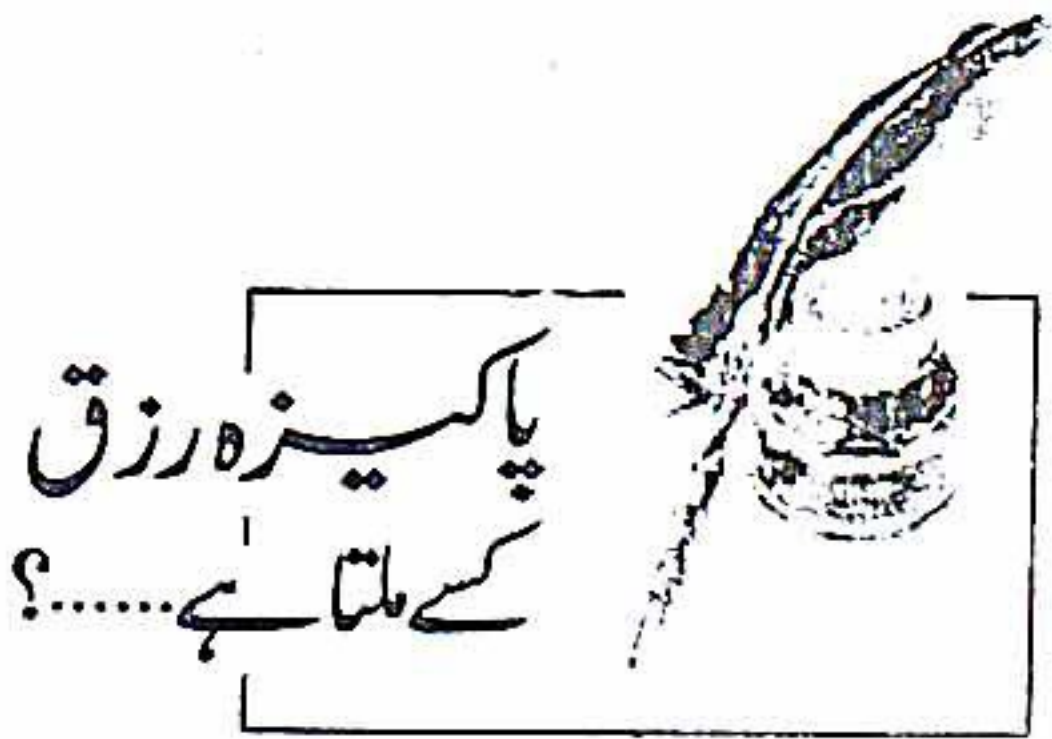 پاکیزہ رزق
کسے ملتا ہے......؟